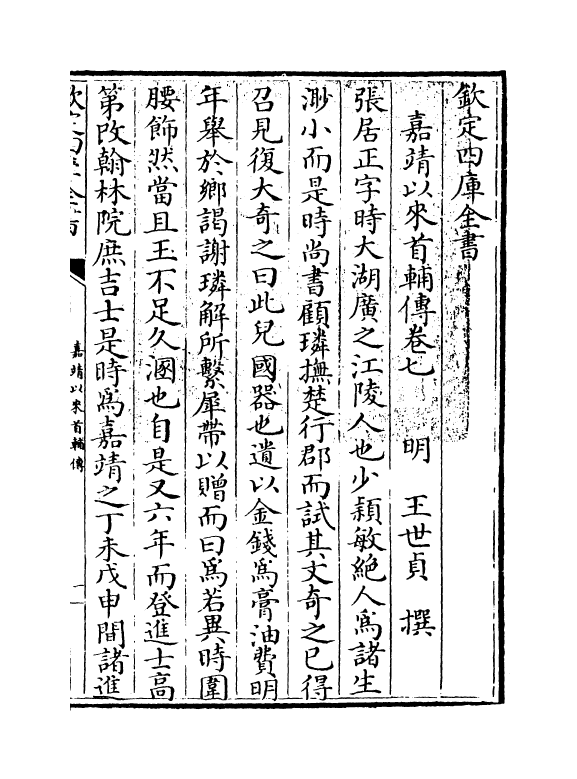 欽定四庫全書
嘉靖以來首輔傳卷七　明　王世貞　撰
張居正字時大湖廣之江陵人也少頴敏絶人為諸生
渺小而是時尚書顧璘撫楚行郡而試其文奇之已得
召見復大奇之曰此兒國器也遺以金錢為膏油費明
年舉於鄉謁謝璘解所繫犀帶以贈而曰為若異時圍
腰飾然當且玉不足久溷也自是又六年而登進士髙
第改翰林院庶吉士是時為嘉靖之丁未戊申間諸進
嘉靖以來首輔傳
一